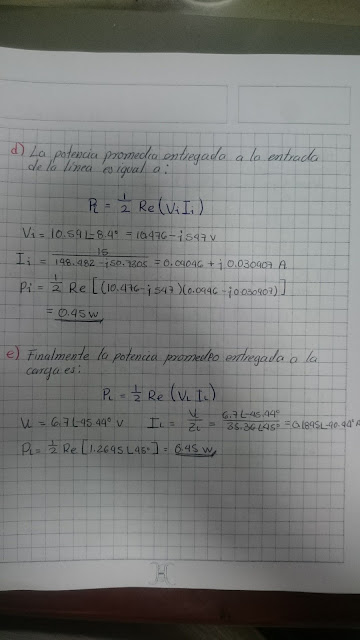 d) La potencia promedio entregada a la entrada
de la línea es igual a:
Pi = 1/2 Re (Vi Ii)
Vi = 10.59∠-8.4° = 10.476 - j.547 V
Ii = 15 / 148.482 - j50.7305 = 0.09046 + j0.030907 A
Pi = 1/2 Re [(10.476 - j.547)(0.0946 - j0.030907)]
= 0.45 w
e) Finalmente la potencia promedio entregada a la
carga es:
PL = 1/2 Re (VL IL)
VL = 6.7∠-45.44° V IL = VL/ZL = 6.7∠-45.44° / 35.36∠45° = 0.1895∠-90.44° A
PL = 1/2 Re [1.2695∠45°] = 0.45 w